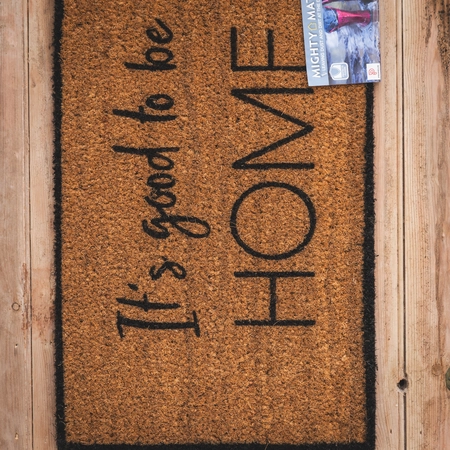 It's good to be
HOME
MIGHTY MAT